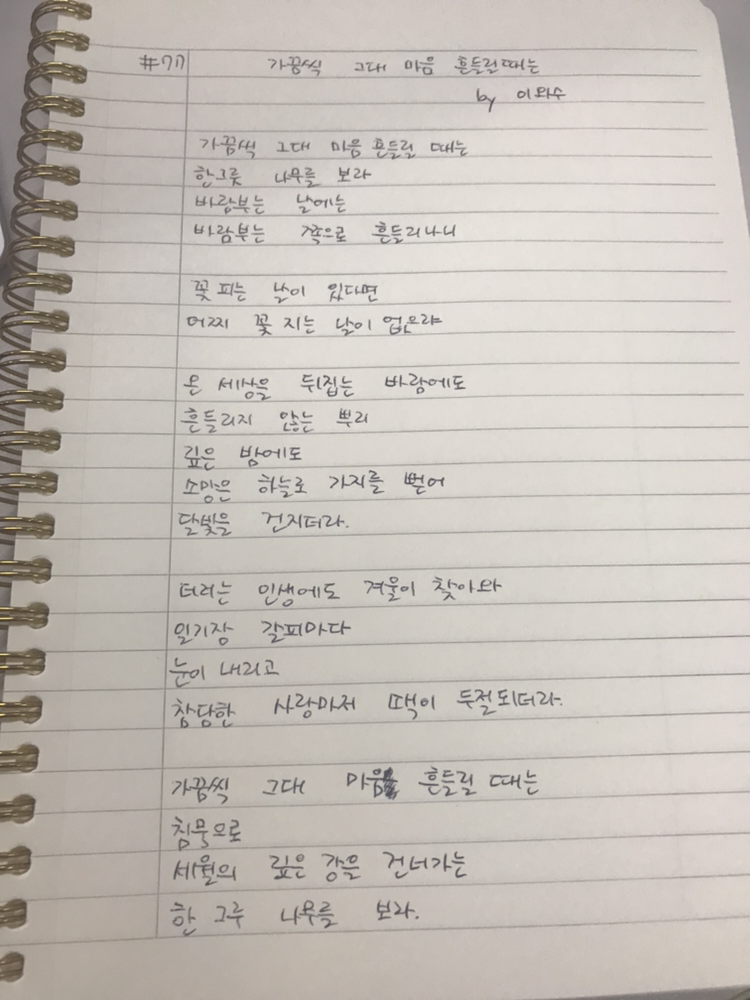 #77 가끔씩 그대 마음 흔들릴때는
by 이외수
가끔씩 그대 마음 흔들릴 때는
한그릇 나무를 보라
바람부는 날에는
바람부는 쪽으로 흔들리나니
꽃 피는 날이 있다면
어찌 꽃 지는 날이 없으랴
온 세상을 뒤집는 바람에도
흔들리지 않는 뿌리
깊은 밤에도
소망은 하늘로 가지를 뻗어
달빛을 건지더라.
더러는 인생에도 겨울이 찾아와
일기장 갈피마다
눈이 내리고
참담한 사랑마저 땍이 두절되더라.
가끔씩 그대 마음 흔들릴 때는
침묵으로
세월의 깊은 강을 건너가는
한 그루 나무를 보라.